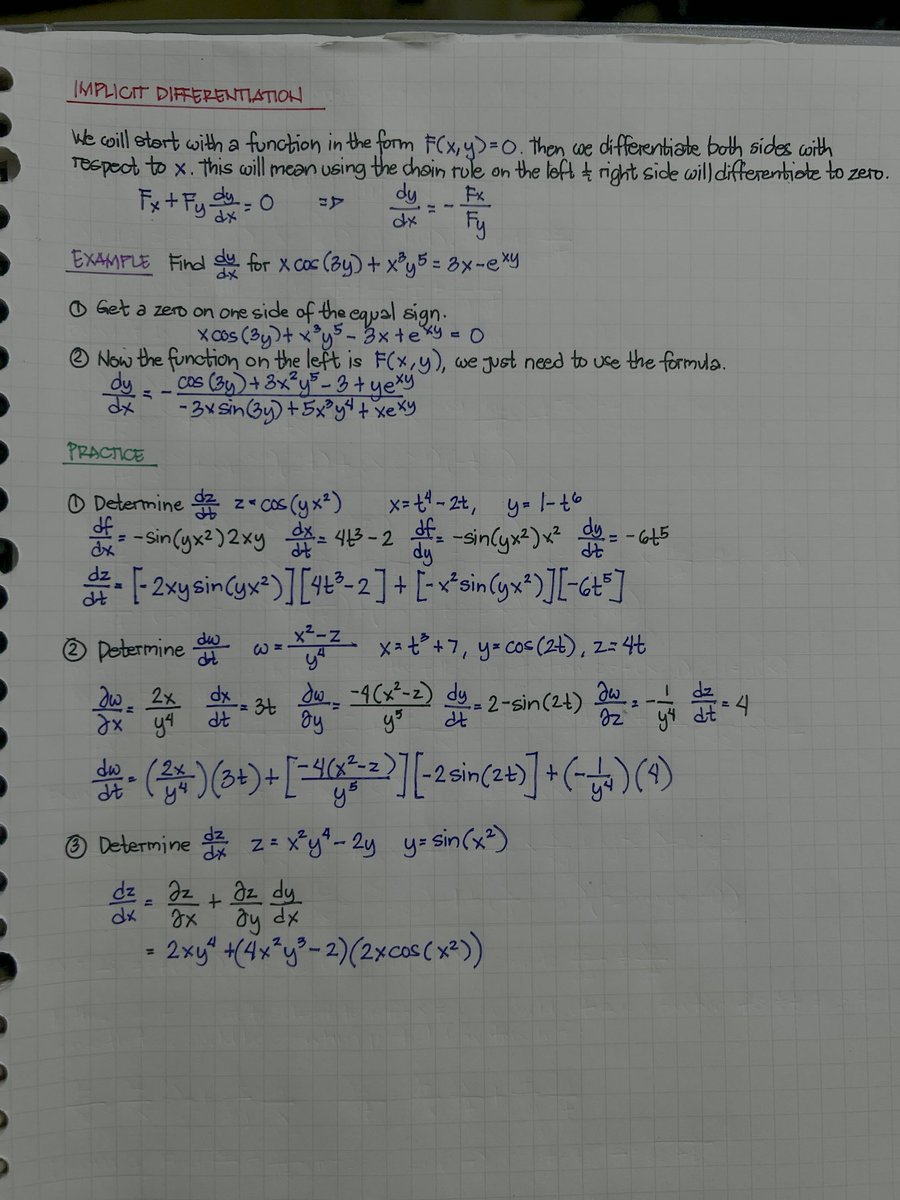 IMPLICIT DIFFERENTIATION
We will start with a function in the form F(x,y)=0. Then we differentiate both sides with
respect to x. This will mean using the chain rule on the left & right side will differentiate to zero.
Fx + Fy dy/dx = 0 => dy/dx = - Fx/Fy
EXAMPLE Find dy/dx for x cos(3y) + x³y⁵ = 3x - e^xy
① Get a zero on one side of the equal sign.
x cos(3y) + x³y⁵ - 3x + e^xy = 0
② Now the function on the left is F(x,y), we just need to use the formula.
dy/dx = - (cos(3y) + 3x²y⁵ - 3 + ye^xy)/(-3x sin(3y) + 5x³y⁴ + xe^xy)
PRACTICE
① Determine dz/dt z = cos(yx²) x = t⁴ - 2t, y = 1 - t⁶
df/dx = -sin(yx²)2xy dx/dt = 4t³ - 2 df/dy = -sin(yx²)x² dy/dt = -6t⁵
dz/dt = [-2xy sin(yx²)][4t³ - 2] + [-x² sin(yx²)][-6t⁵]
② Determine dw/dt ω = (x² - z)/y⁴ x = t³ + 7, y = cos(2t), z = 4t
∂w/∂x = 2x/y⁴ dx/dt = 3t ∂w/∂y = -4(x² - z)/y⁵ dy/dt = 2 - sin(2t) ∂w/∂z = -1/y⁴ dz/dt = 4
dw/dt = (2x/y⁴)(3t) + [-4(x² - z)/y⁵][-2 sin(2t)] + (-1/y⁴)(4)
③ Determine dz/dx z = x²y⁴ - 2y y = sin(x²)
dz/dx = ∂z/∂x + ∂z/∂y dy/dx
= 2xy⁴ + (4x²y³ - 2)(2x cos(x²))